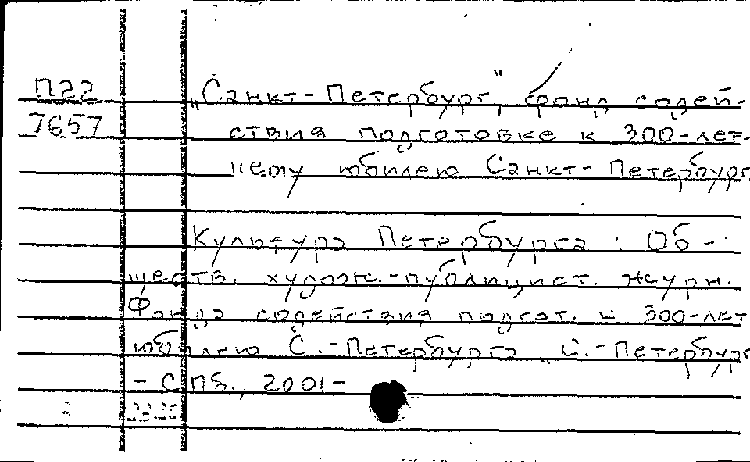 П22
7657
„Санкт-Петербург", фонд содей-
ствия подготовке к 300-лет-
нему юбилею Санкт-Петербург
Культура Петербурга : Об-
ществ. худож.-публицист. журн.
Фонда содействия подгот. к 300-лет
юбилею С.-Петербурга „С.-Петербург
- СПб., 2001-